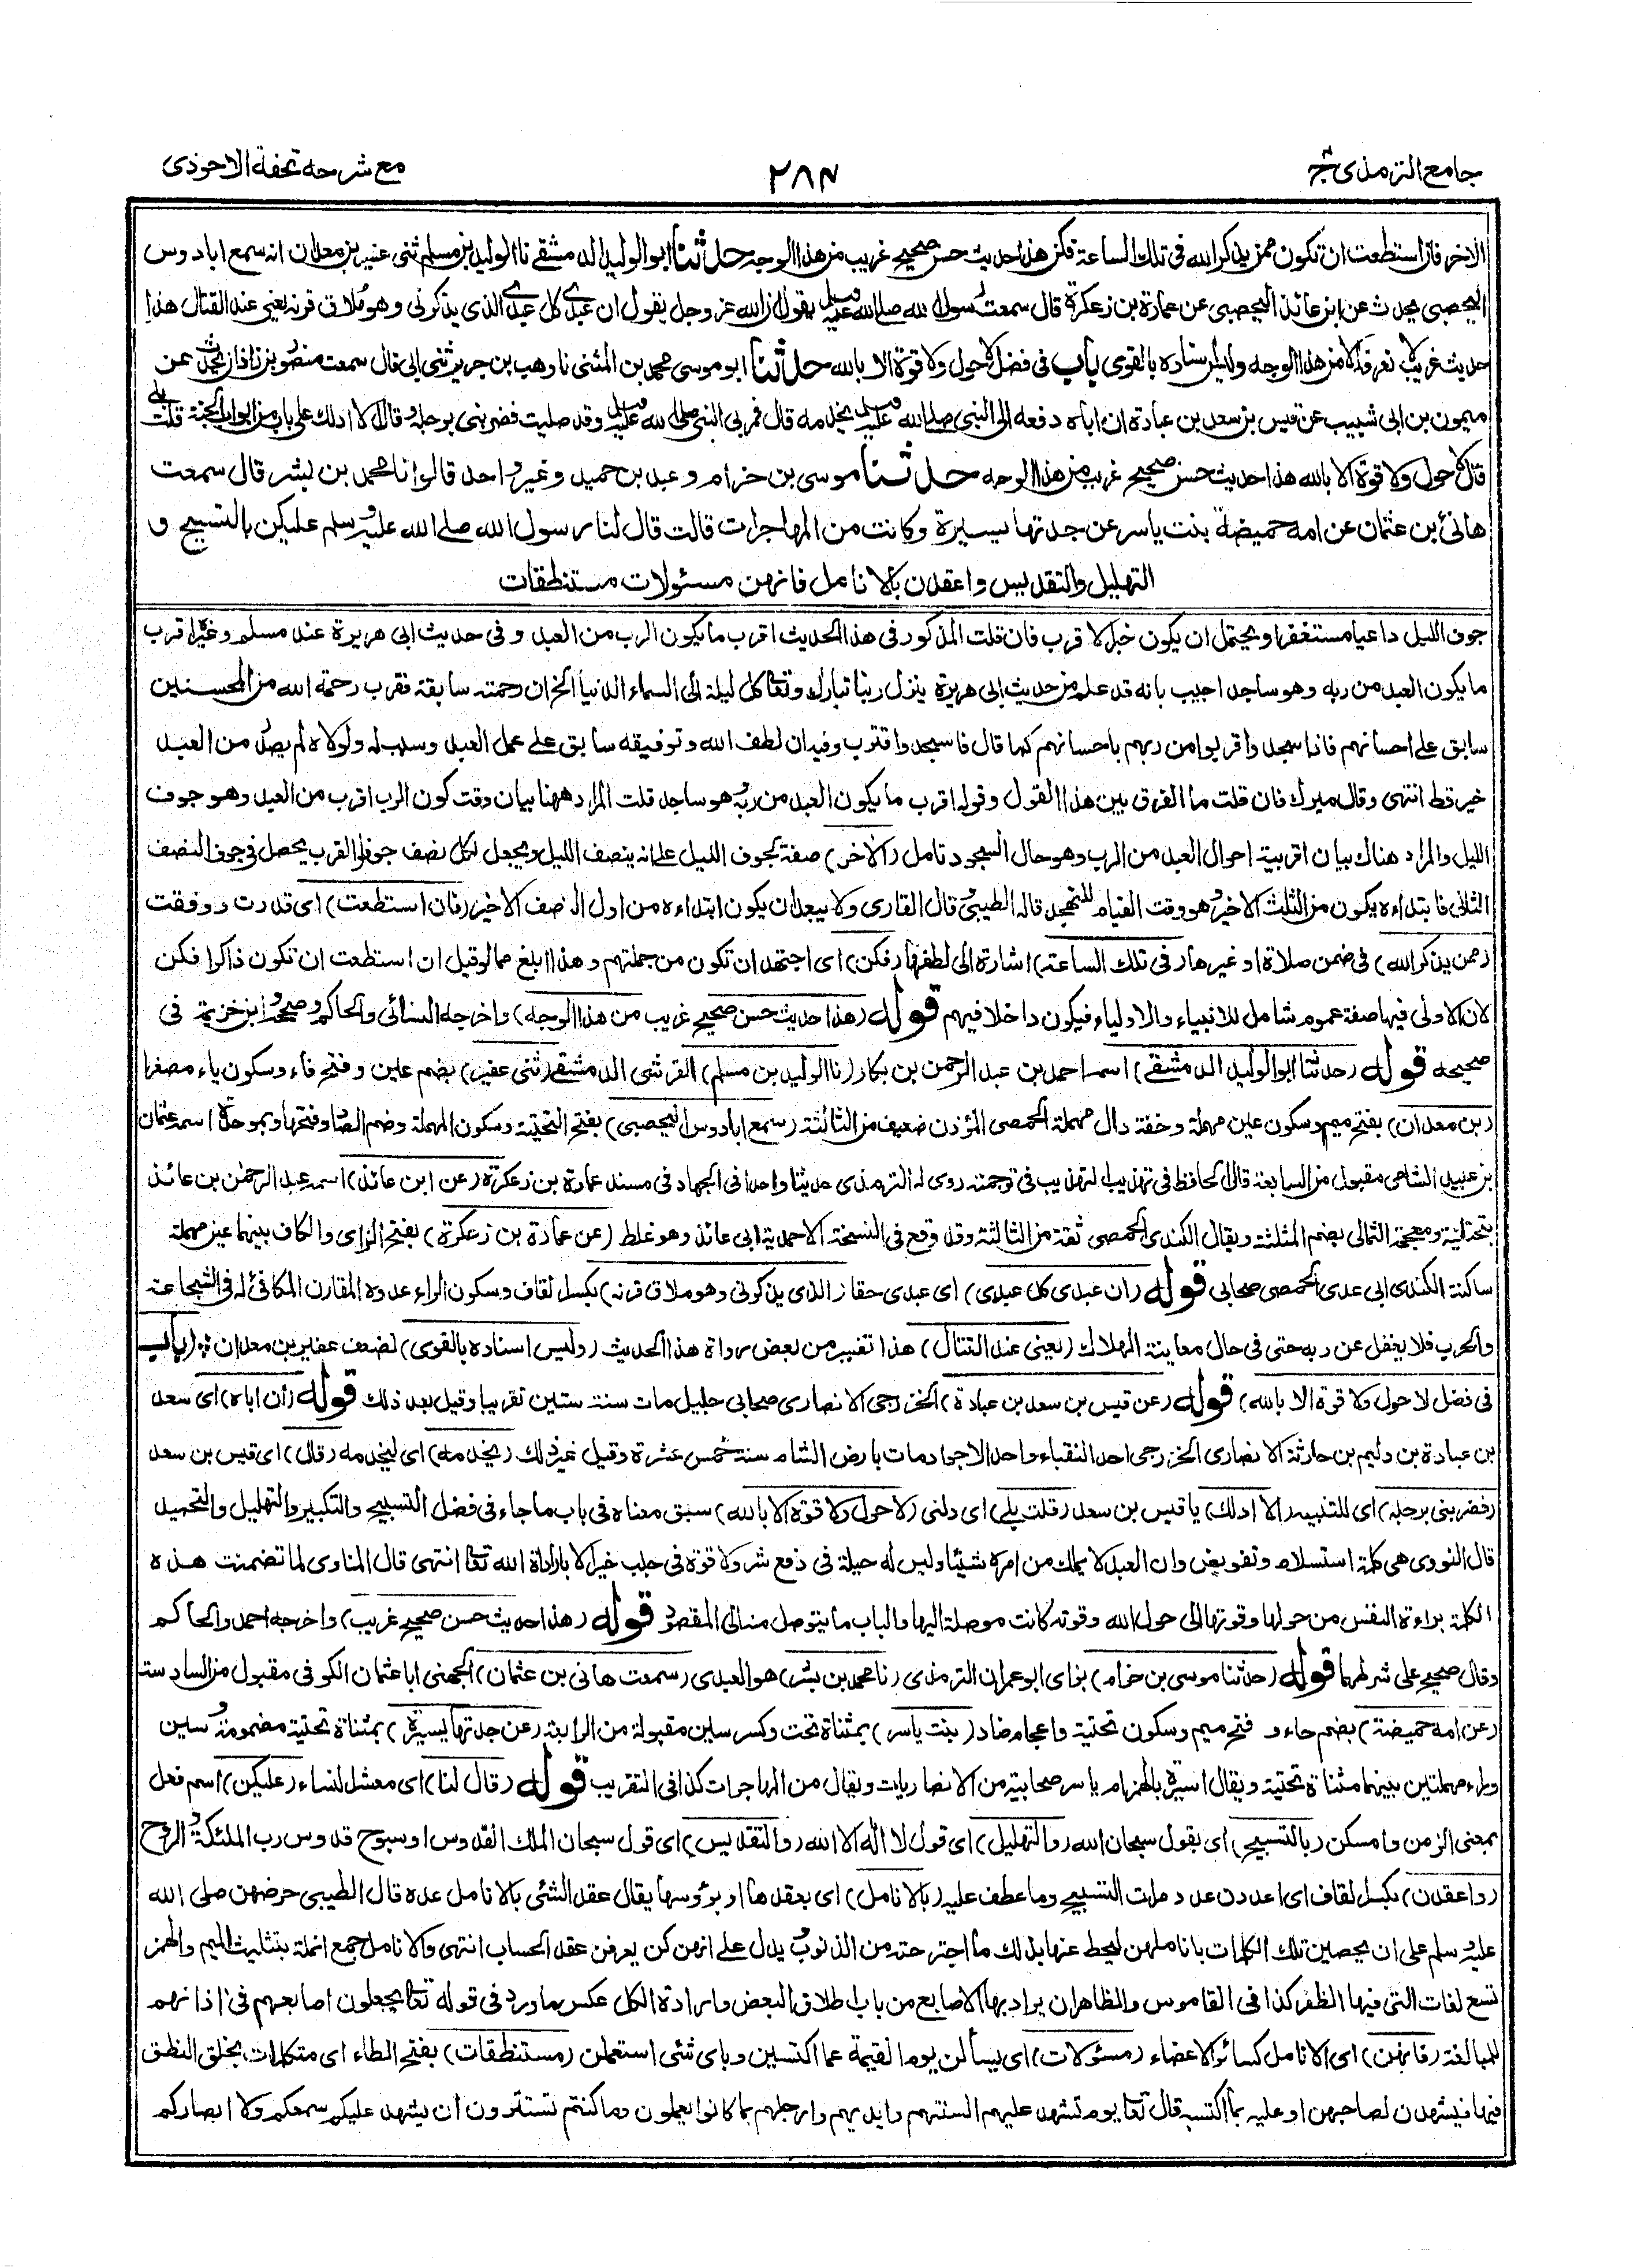 جامع الترمذي ج٤
٢٨٤
مع شرحه تحفة الاحوذى
الآخر فان استطعت ان تكون ممن يذكر الله فى تلك الساعة فكن هذا حديث حسن صحيح غريب من هذا الوجه حدثنا ابو الوليد الدمشقى نا الوليد بن مسلم ثنى عفير بن معدان انه سمع ابا دوس
اليحصبى يحدث عن ابن عائذ اليحصبى عن عمارة بن زعكرة قال سمعت رسول الله صلى الله عليه وسلم يقول ان الله عز وجل يقول ان عبدى كل عبدى الذى يذكرنى وهو ملاق قرنه يعنى عند القتال هذا
حديث غريب لا نعرفه الا من هذا الوجه وليس اسناده بالقوى باب فى فضل لا حول ولا قوة الا بالله حدثنا ابو موسى محمد بن المثنى نا وهب بن جرير ثنى ابى قال سمعت منصور بن زاذان يحدث عن
ميمون بن ابى شبيب عن قيس بن سعد بن عبادة ان اباه دفعه الى النبى صلى الله عليه وسلم يخدمه قال فمر بى النبى صلى الله عليه وسلم وقد صليت فضربنى برجله وقال الا ادلك على باب من ابواب الجنة قلت بلى
قال لا حول ولا قوة الا بالله هذا حديث حسن صحيح غريب من هذا الوجه حدثنا موسى بن حزام وعبد بن حميد وغير واحد قالوا نا محمد بن بشر قال سمعت
هانئ بن عثمان عن امه حميضة بنت ياسر عن جدتها يسيرة وكانت من المهاجرات قالت قال لنا رسول الله صلى الله عليه وسلم عليكن بالتسبيح و
التهليل والتقديس واعقدن بالانامل فانهن مسئولات مستنطقات
جوف الليل داعيا مستغفرا ويحتمل ان يكون خبر الاقرب فان قلت المذكور فى هذا الحديث اقرب ما يكون الرب من العبد وفى حديث ابى هريرة عند مسلم وغيره اقرب
ما يكون العبد من ربه وهو ساجد اجيب بانه قد علم من حديث ابى هريرة ينزل ربنا تبارك وتعالى كل ليلة الى السماء الدنيا الخ ان رحمته سابقة فقرب رحمة الله من المحسنين
سابق على احسانهم فاذا سجدوا قربوا من ربهم باحسانهم كما قال فاسجد واقترب وفيه ان لطف الله وتوفيقه سابق على عمل العبد وسبب له ولولاه لم يصدر من العبد
خير قط انتهى وقال ميرك فان قلت ما الفرق بين هذا القول وقوله اقرب ما يكون العبد من ربه وهو ساجد قلت المراد ههنا بيان وقت كون الرب اقرب من العبد وهو جوف
الليل والمراد هناك بيان اقربية احوال العبد من الرب وهو حال السجود تامل (الآخر) صفة لجوف الليل على انه ينصف الليل ويجعل لكل نصف جوفا والقرب يحصل فى جوف النصف
الثانى فابتداءه يكون من الثلث الاخير وهو وقت القيام للتهجد قاله الطيبى قال القارى ولا يبعد ان يكون ابتداءه من اول النصف الاخير (فان استطعت) اى قدرت ووفقت
(ممن يذكر الله) فى ضمن صلاة او غيرها (فى تلك الساعة) اشارة الى لطفها (فكن) اى اجتهد ان تكون من جملتهم وهذا ابلغ مما لو قيل ان استطعت ان تكون ذاكرا فكن
لان الاولى فيها صفة عموم شامل للانبياء والاولياء فيكون داخلا فيهم قوله (هذا حديث حسن صحيح غريب من هذا الوجه) واخرجه النسائى والحاكم وصححه وابن خزيمة فى
صحيحه قوله (حدثنا ابو الوليد الدمشقى) اسمه احمد بن عبد الرحمن بن بكار (نا الوليد بن مسلم) القرشى الدمشقى (ثنى عفير) بضم عين وفتح فاء وسكون ياء مصغرا
(بن معدان) بفتح ميم وسكون عين مهملة وخفة دال مهملة الحمصى المؤذن ضعيف من الثالثة (سمع ابا دوس اليحصبى) بفتح التحتية وسكون المهملة وضم الصاد وفتحها وبموحدة اسمه عثمان
بن عبيد الشامى مقبول من السابعة قال الحافظ فى تهذيب التهذيب فى ترجمته روى له الترمذى حديثا واحدا فى الجهاد فى مسند عمارة بن زعكرة (عن ابن عائذ) اسمه عبد الرحمن بن عائذ
بتحتانية ومعجمة الثمالى بضم المثلثة ويقال الكندى الحمصى ثقة من الثالثة وقد وقع فى النسخة الاحمدية ابى عائذ وهو غلط (عن عمارة بن زعكرة) بفتح الزاى والكاف بينهما عين مهملة
ساكنة الكندى ابى عدى الحمصى صحابى قوله (ان عبدى كل عبدى) اى عبدى حقا (الذى يذكرنى وهو ملاق قرنه) بكسر القاف وسكون الراء عدوه المقارن المكافئ له فى الشجاعة
والحرب فلا يغفل عن ربه حتى فى حال معاينة الهلاك (يعنى عند القتال) هذا تفسير من بعض رواة هذا الحديث (وليس اسناده بالقوى) لضعف عفير بن معدان (باب
فى فضل لا حول ولا قوة الا بالله) قوله (عن قيس بن سعد بن عبادة) الخزرجى الانصارى صحابى جليل مات سنة ستين تقريبا وقيل بعد ذلك قوله (ان اباه) اى سعد
بن عبادة بن دليم بن حارثة الانصارى الخزرجى احد النقباء واحد الاجواد مات بارض الشام سنة خمس عشرة وقيل غير ذلك (يخدمه) اى ليخدمه (قال) اى قيس بن سعد
(فضربنى برجله) اى للتنبيه (الا ادلك) يا قيس بن سعد (قلت بلى) اى دلنى (لا حول ولا قوة الا بالله) سبق معناه فى باب ما جاء فى فضل التسبيح والتكبير والتهليل والتحميد
قال النووى هى كلمة استسلام وتفويض وان العبد لا يملك من امره شيئا وليس له حيلة فى دفع شر ولا قوة فى جلب خير الا بارادة الله تعالى انتهى قال المناوى لما تضمنت هذه
الكلمة براءة النفس من حولها وقوتها الى حول الله وقوته كانت موصلة اليها والباب ما يتوصل منه الى المقصود قوله (هذا حديث حسن صحيح غريب) واخرجه احمد والحاكم
وقال صحيح على شرطهما قوله (حدثنا موسى بن حزام) بزاى ابو عمران الترمذى (نا محمد بن بشر) هو العبدى (سمعت هانى بن عثمان) الجهنى ابا عثمان الكوفى مقبول من السادسة
(عن امه حميضة) بضم حاء وفتح ميم وسكون تحتية واعجام ضاد (بنت ياسر) بمثناة تحت وكسر سين مقبولة من الرابعة (عن جدتها يسيرة) بمثناة تحتية مضمومة وسين
وراء مهملتين بينهما مثناة تحتية ويقال اسيرة بالهمز ام ياسر صحابية من الانصاريات ويقال من المهاجرات كذا فى التقريب قوله (قال لنا) اى معشر النساء (عليكن) اسم فعل
بمعنى الزمن وامسكن (بالتسبيح) اى بقول سبحان الله (والتهليل) اى قول لا اله الا الله (والتقديس) اى قول سبحان الملك القدوس او سبوح قدوس رب الملئكة والروح
(واعقدن) بكسر القاف اى اعددن عدد مرات التسبيح وما عطف عليه (بالانامل) اى بعقدها او برؤسها يقال عقد الشئ بالانامل عده قال الطيبى حرضهن صلى الله
عليه وسلم على ان يحصين تلك الكلمات باناملهن ليحط عنها بذلك ما اجترحته من الذنوب ويدل على انهن كن يعرفن عقد الحساب انتهى والانامل جمع انملة بتثليث الميم والهمز
تسع لغات التى فيها الظفر كذا فى القاموس والظاهر ان يراد بها الاصابع من باب اطلاق البعض وارادة الكل عكس ما ورد فى قوله تعالى يجعلون اصابعهم فى اذانهم
للمبالغة (فانهن) اى الانامل كسائر الاعضاء (مسئولات) اى يسألن يوم القيمة عما اكتسبن وباى شئ استعملن (مستنطقات) بفتح الطاء اى متكلمات بخلق النطق
فيها فيشهدن لصاحبهن او عليه بما اكتسبه قال تعالى يوم تشهد عليهم السنتهم وايديهم وارجلهم بما كانوا يعملون وما كنتم تستترون ان يشهد عليكم سمعكم ولا ابصاركم